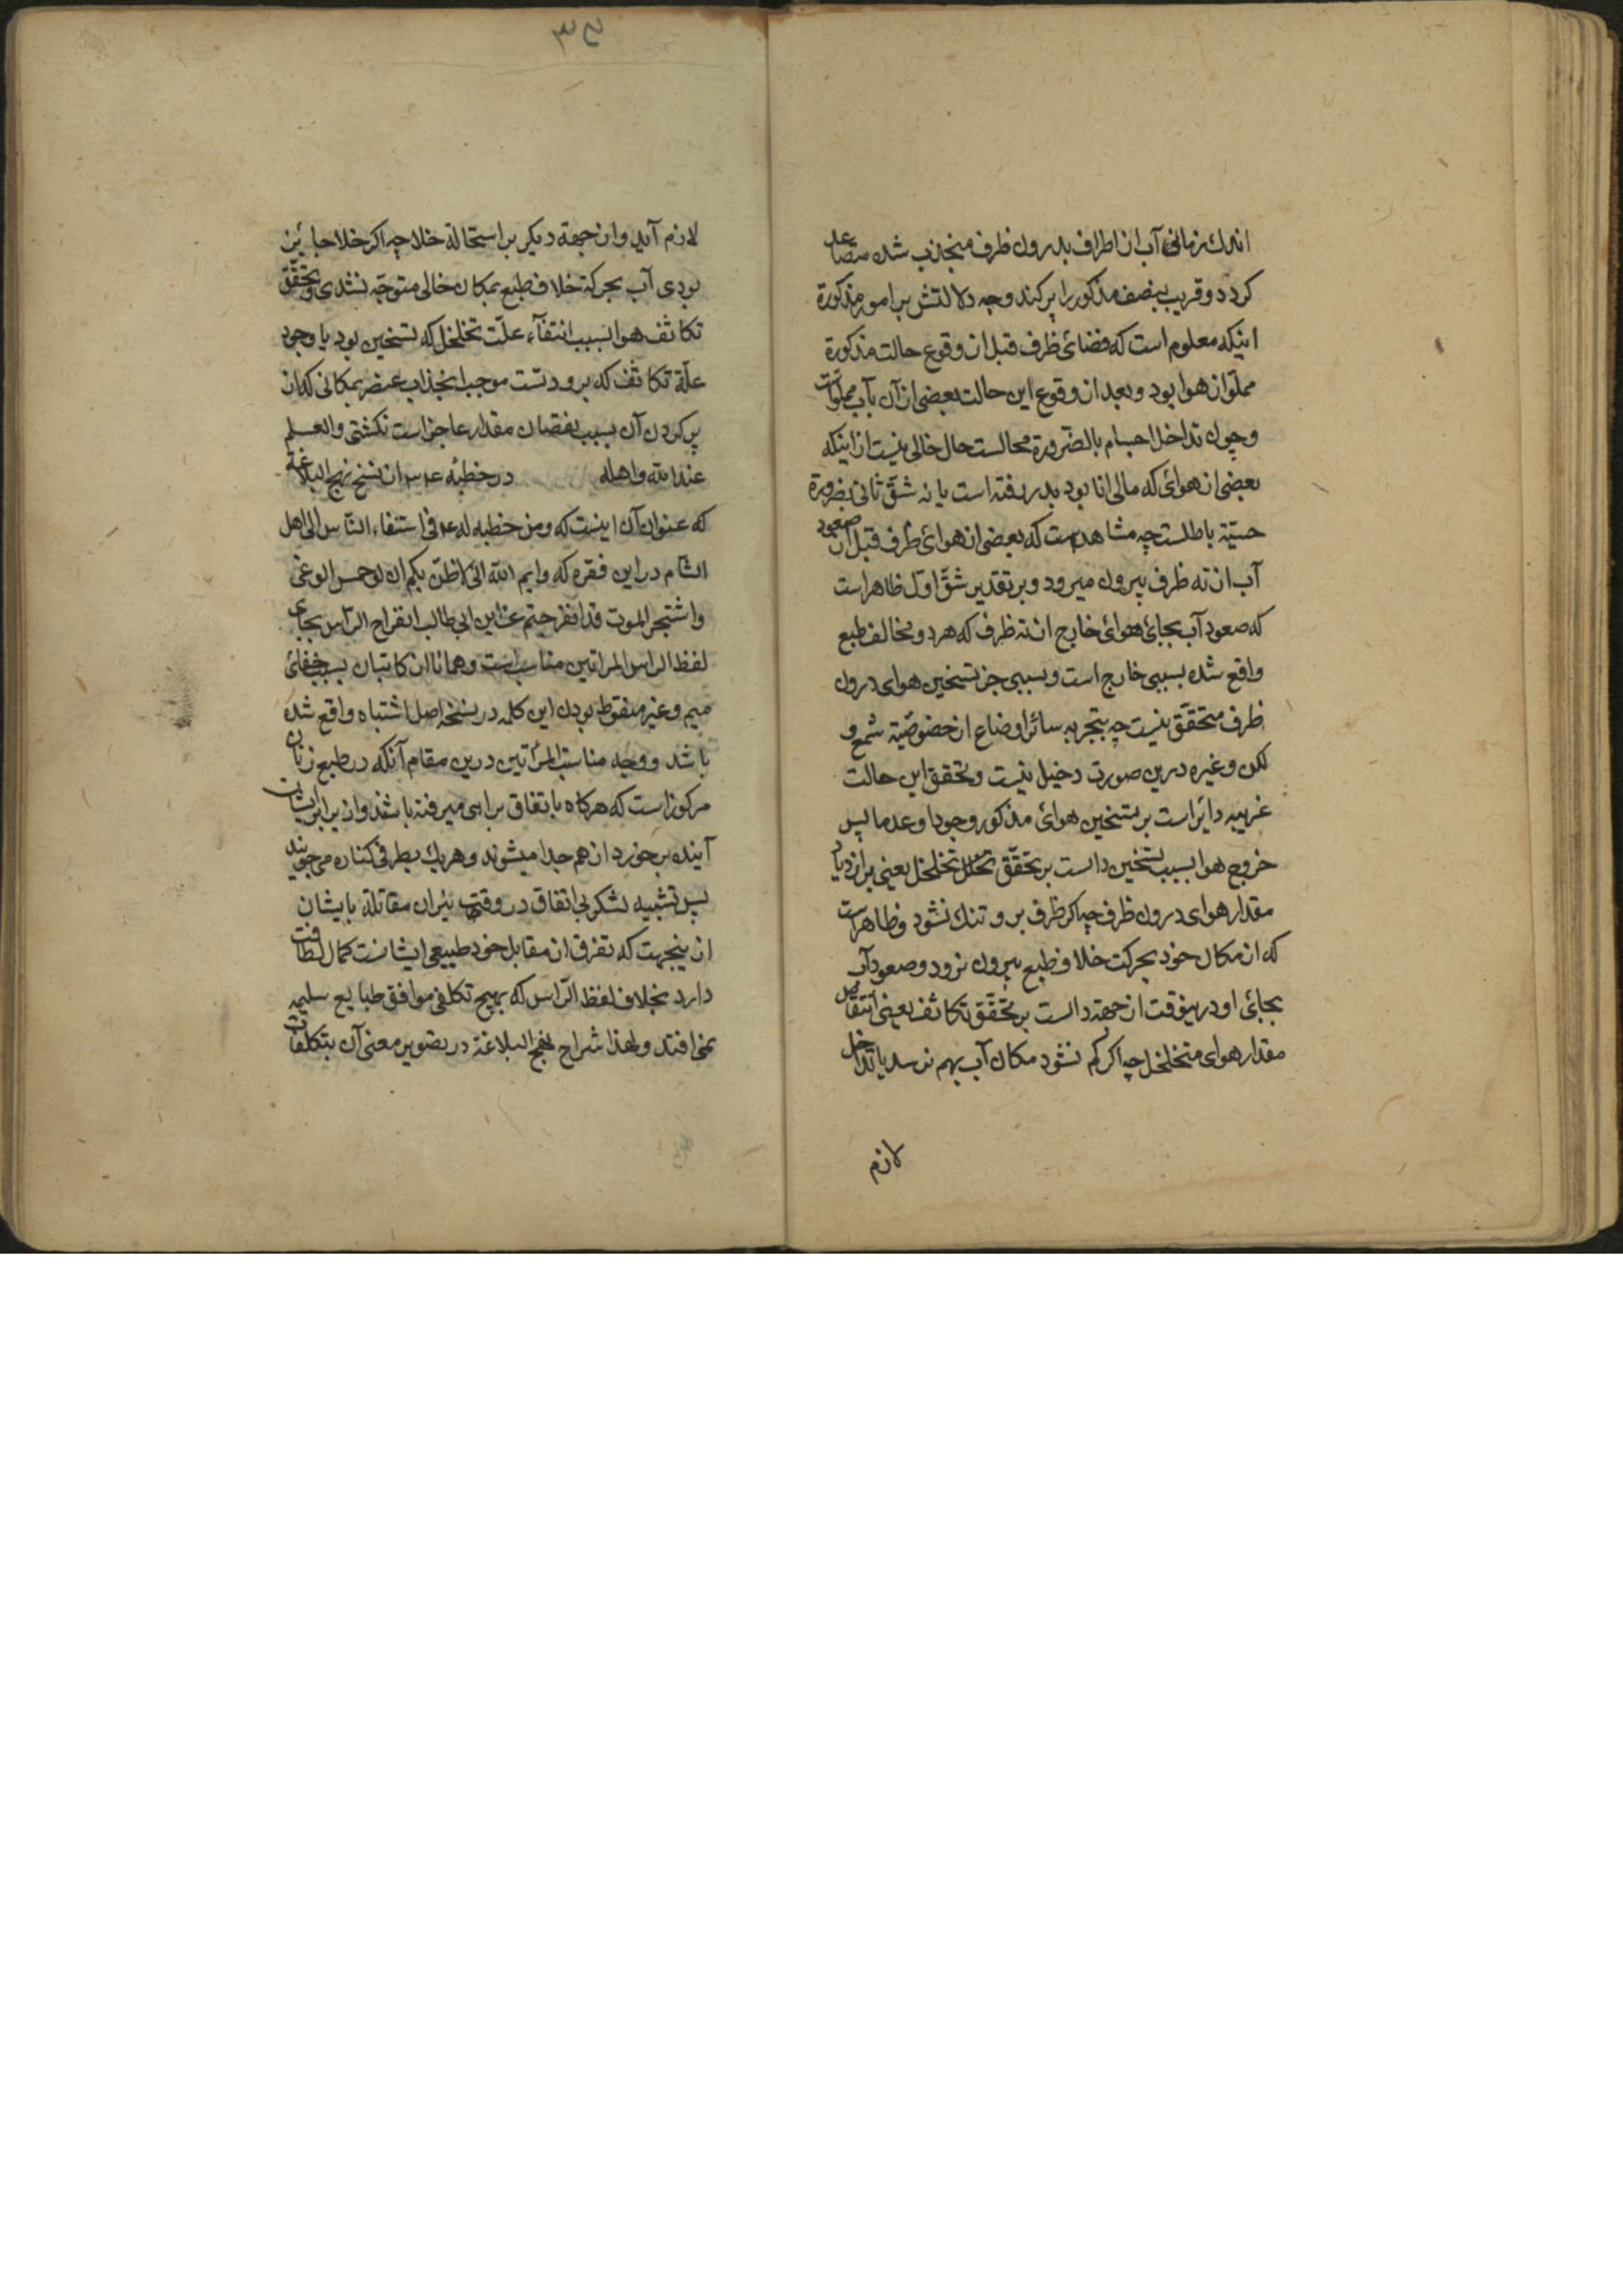 اندك زمانی آب از اطراف بدرون ظرف منجذب شده متصاعد
کردد و قریب بنصف مذکور را پر کند وجه دلالتش بر امور مذکورة
اینکه معلوم است که فضائ ظرف قبل از وقوع حالت مذکورة
مملو از هوا بود و بعد از وقوع این حالت بعضی از آن بآب مملوّ است
و چون تداخل اجسام بالضّرورة محالست حال خالی نیست از اینکه
بعضی از هوائ که مالی انا بود بدر رفته است یا نه شقّ ثانی بضرورة
حسیّة باطلست چه مشاهدست که بعضی از هوائ ظرف قبل از صعود
آب از ته ظرف بیرون میرود و بر تقدیر شقّ اوّل ظاهر است
که صعود آب بجائ هوائ خارج از ته ظرف که هر دو مخالف طبع
واقع شده بسببی خارج است و سببی جز تسخین هوای درون
ظرف متحقّق نیست چه بتجربه سائر اوضاع از خصوصیّة شمع و
لکن و غیره درین صورت دخیل نیست و تحقق این حالت
غریبه دایر است بر تسخین هوائ مذکور وجودا و عدما پس
خروج هوا بسبب تسخین دالست بر تحقّق تخلخل یعنی بر ازدیاد
مقدار هوای درون ظرف چه اکر ظرف بر و تنك نشود ظاهر است
که از مکان خود بحرکت خلاف طبع بیرون نرود و صعود آب
بجائ او در ینوقت از جهة دالست بر تحقّق تکاثف یعنی انتقاص
مقدار هوای متخلخل چه اکر کم نشود مکان آب بهم نرسد یا تداخل
لازم
۳۵
لازم آید و از جهة دیکر بر استحالة خلا چه اکر خلا جایز
بودی آب بحرکة خلاف طبع بمکان خالی متوجّه نشدی و تحقّق
تکاثف هوا بسبب انتفآء علّت تخلخل که تسخین بود یا وجود
علّة تکاثف که برودتست موجب انجذاب عنصر بمکانی که از
پر کردن آن بسبب نقصان مقدار عاجز است نکشتی والعلم
عند الله واهله در خطبهٔ ۳۴ از نسخ نهج البلاغة
که عنوان آن اینست که ومن خطبه له ع فی استنفار النّاس الی اهل
الشام در این فقره که وایم الله انّی لاظنّ بکم ان لو حمس الوغی
واشتجر الموت قد انفرجتم عن ابن ابی طالب انفراج الرّاس بجای
لفظ الراس المراتین مناسب است و همانا از کاتبان بسبب خفائ
میم و غیر منقوط بودن این کلمه در نسخه اصل اشتباه واقع شده
باشد و وجه مناسبت المرأتین درین مقام آنکه در طبع زنان
مرکوز است که هرکاه باتفاق براهی میرفته باشند و از برابر ایشان
آینده برخورد از هم جدا میشوند و هریك بطرفی کناره میجویند
پس تشبیه لشکر بی اتفاق در وقت نیران مقاتلة بایشان
ازینجهت که تفرق از مقابل خود طبیعی ایشانست کمال لطافت
دارد بخلاف لفظ الرّاس که بهیچ تکلفی موافق طبایع سلیمه
نمی افتد ولهذا شراح نهج البلاغة در تصویر معنی آن بتکلفات